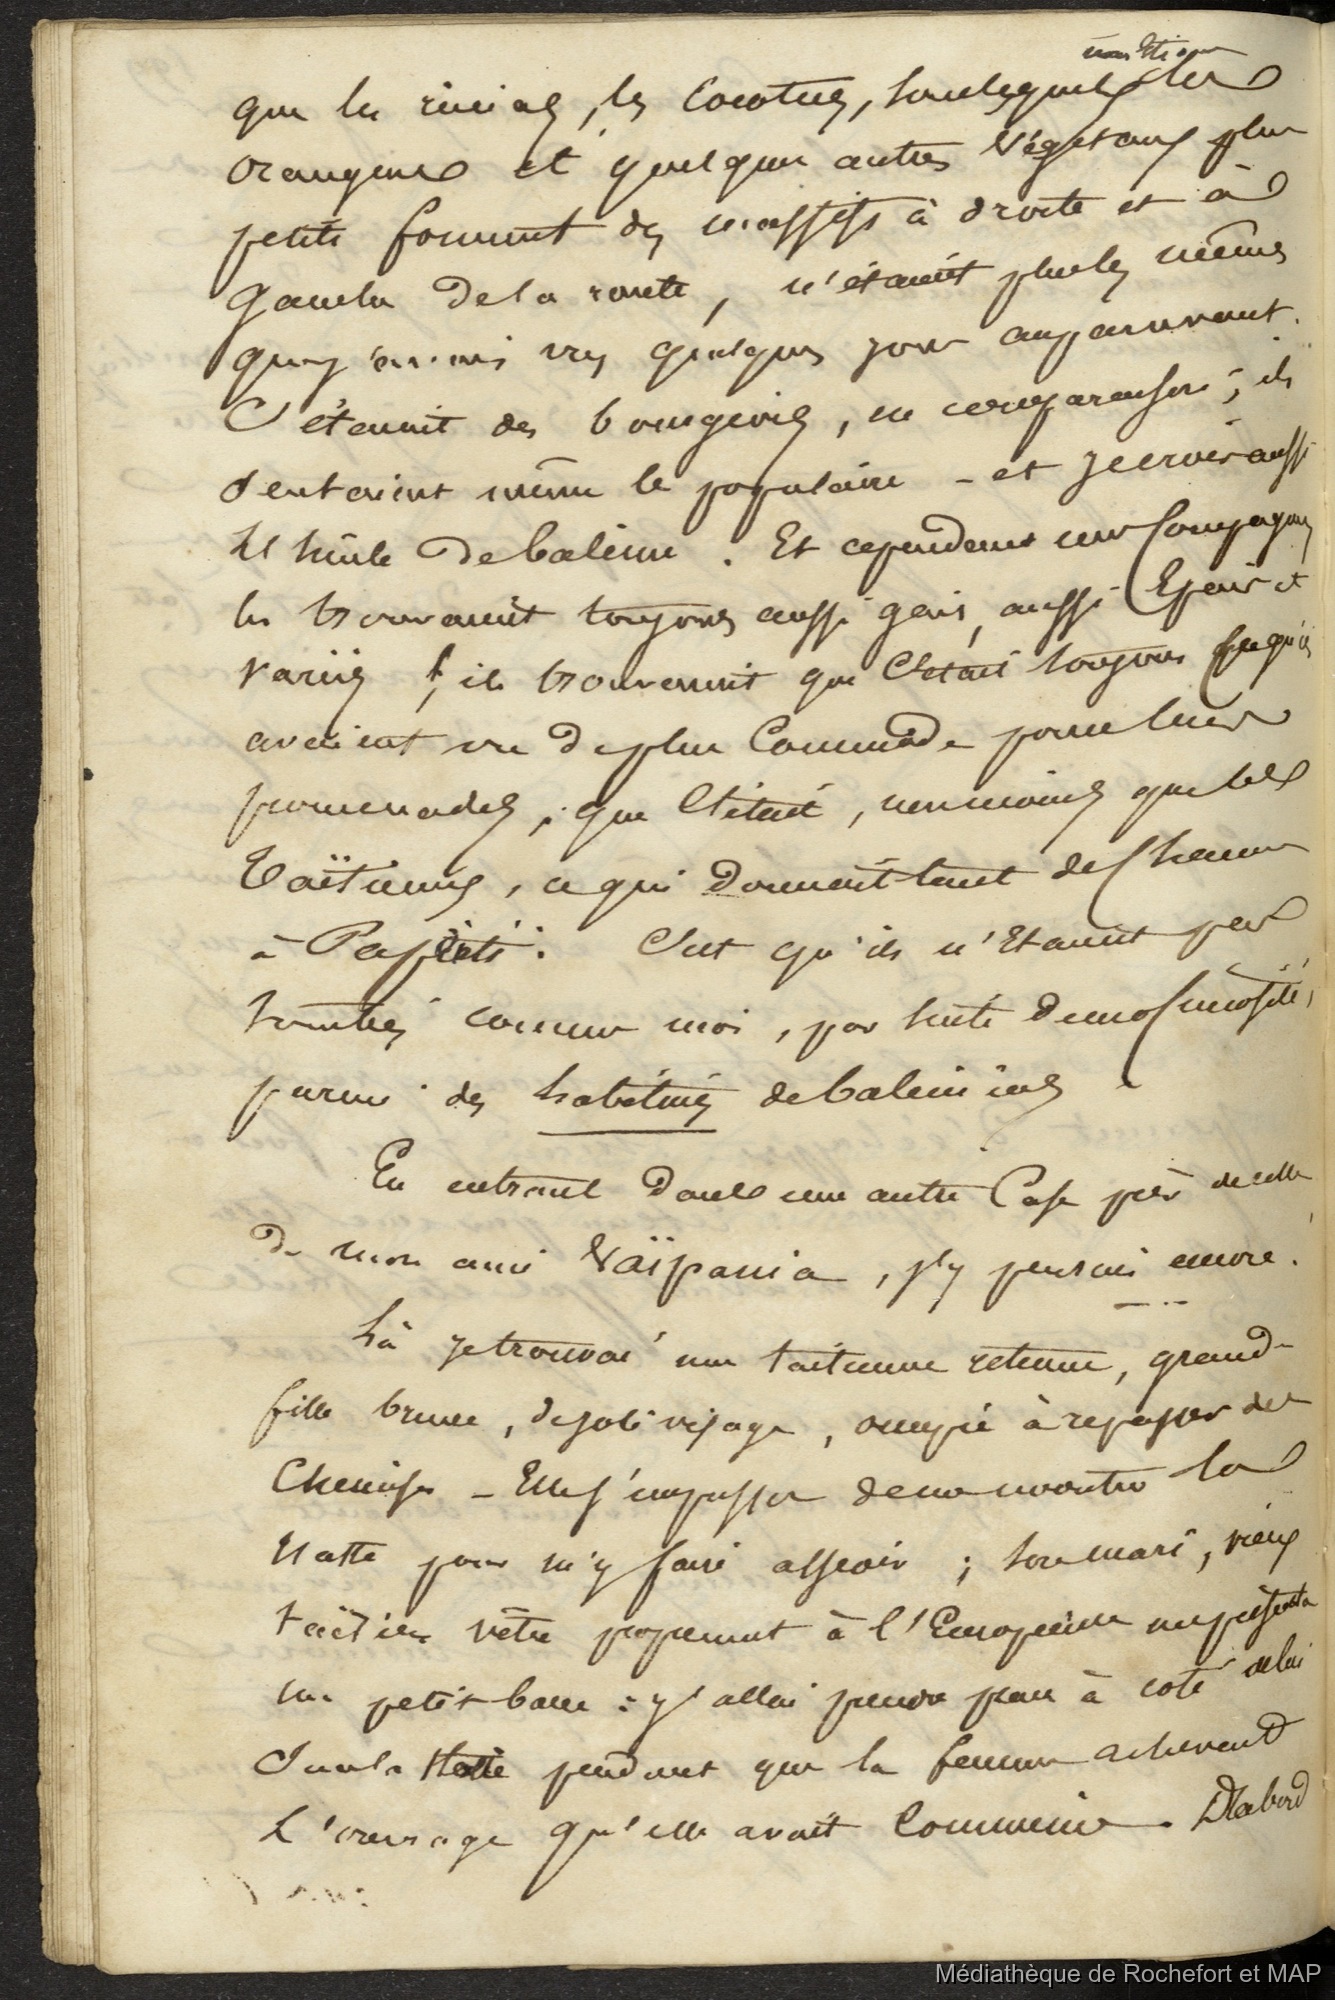 que les ricins, les cocotiers, sous lesquels les
orangers et quelques autres végétaux plus
petits forment des massifs à droite et à
gauche de la route, n'étaient plus les mêmes
que j'avais vus quelques jours auparavant.
C'étaient des bourgeois, en comparaison ; ils
sentaient même le populaire - et je crois aussi
l'huile de baleine. Et cependant mes compagnons
les trouvaient toujours aussi gais, aussi épais et
variés ; ils trouvaient que c'était toujours ce qu'ils
avaient vu de plus commode pour leurs
promenades ; que c'était, non moins que les
Taïtiennes, ce qui donnait tant de charme
à Papéïti. C'est qu'ils n'étaient pas
tombés comme moi, par suite de ma curiosité,
parmi des habitués de baleiniers.
En entrant dans une autre case près de celle
de mon ami Vaïpania, j'y pensais encore.
Là je trouvai une taïtienne, grande
fille brune, de joli visage, occupée à repasser des
chemises - Elle s'empressa de me montrer la
natte pour m'y faire asseoir ; son mari, vieux
taïtien vêtu proprement à l'Européenne me présenta
un petit banc : j'allai prendre place à coté de lui
sur la natte pendant que la femme achevait
l'ouvrage qu'elle avait commencé. D'abord
Médiathèque de Rochefort et MAP